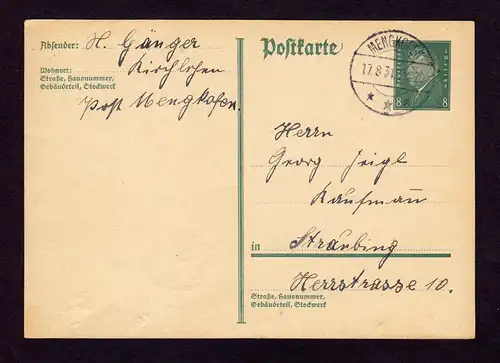 Absender: H. Gänger
Wohnort: Kirchlehen
Straße, Hausnummer,
Gebäudeteil, Stockwerk
Post Mengkofen.
Postkarte
17.8.3
8 8
Herrn
Georg Zeigl
Kaufmann
in Straubing
Herrstrasse 10.
Straße, Hausnummer,
Gebäudeteil, Stockwerk